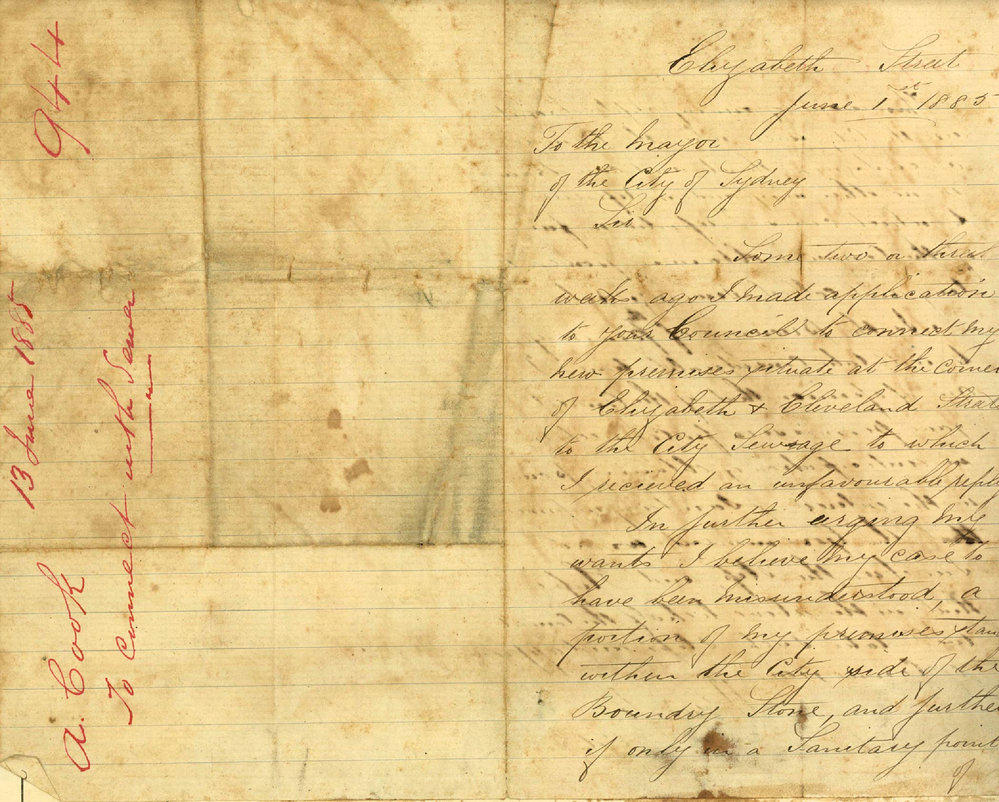 944
13 June 1885
A. Cook
To Connect with Sewer
Elizabeth Street
June 1st 1885
To the Mayor
of the City of Sydney
Sir
Some two or three
weeks ago I made application
to your Council to connect my
new premises situate at the corner
of Elizabeth & Cleveland Street
to the City Sewrage to which
I recieved an unfavourable reply
In further urging my
wants I believe my case to
have been misunderstood, a
portion of my premises stand
within the City side of the
Boundry Stone, and further
if only in a Sanitary point
of